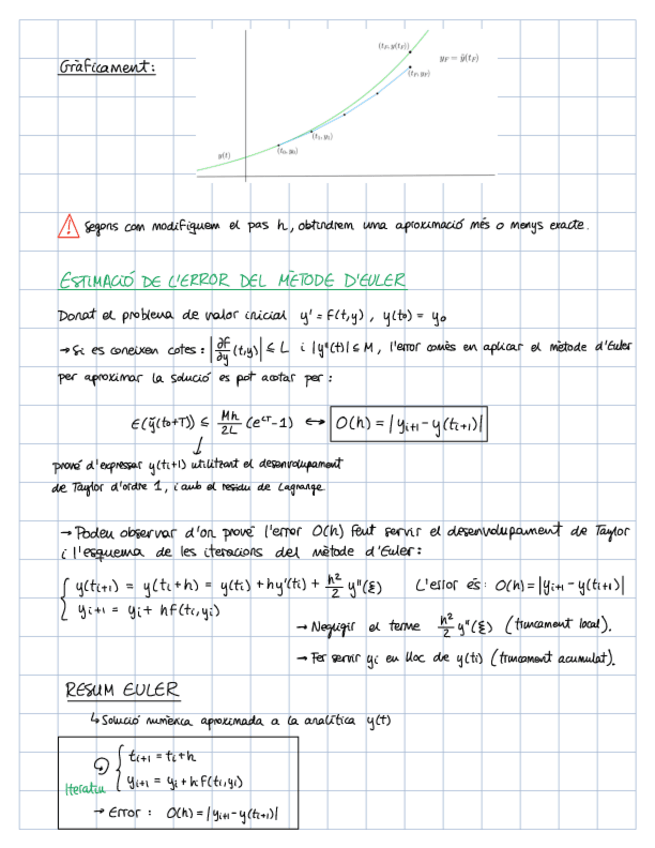 Gràficament:
(t_F, y(t_F))
y_F = ỹ(t_F)
(t_F, y_F)
(t₁, y₁)
(t₀, y₀)
y(t)
Segons com modifiquem el pas h, obtindrem una aproximació més o menys exacte.
ESTIMACIÓ DE L'ERROR DEL MÈTODE D'EULER
Donat el problema de valor inicial y' = f(t,y), y(t₀) = y₀
→ Si es coneixen cotes: |∂F/∂y (t,y)| ≤ L i |y''(t)| ≤ M, l'error comès en aplicar el mètode d'Euler
per aproximar la solució es pot acotar per:
E(ỹ(t₀+T)) ≤ Mh/2L (e^{LT}-1) ↔ O(h) = |y_{i+1} - y(t_{i+1})|
prové d'expressar y(t_{i+1}) utilitzant el desenvolupament
de Taylor d'ordre 1, i amb el residu de Lagrange
→ Podeu observar d'on prové l'error O(h) fent servir el desenvolupament de Taylor
i l'esquema de les iteracions del mètode d'Euler:
y(t_{i+1}) = y(t_i + h) = y(t_i) + hy'(t_i) + h²/2 y''(ξ) L'error és: O(h) = |y_{i+1} - y(t_{i+1})|
y_{i+1} = y_i + hf(t_i, y_i)
→ Negligir el terme h²/2 y''(ξ) (truncament local).
→ Fer servir y_i en lloc de y(t_i) (truncament acumulat).
RESUM EULER
↳ Solució numèrica aproximada a la analítica y(t)
t_{i+1} = t_i + h
Iteratiu
y_{i+1} = y_i + hf(t_i, y_i)
→ Error: O(h) = |y_{i+1} - y(t_{i+1})|